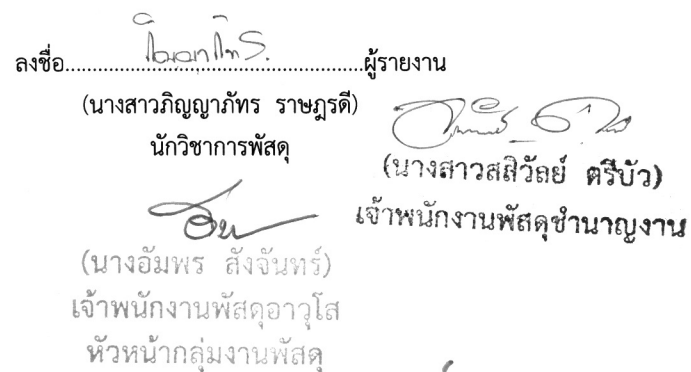 ลงชื่อ............................................................ผู้รายงาน
(นางสาวภิญญาภัทร ราษฎรดี)
นักวิชาการพัสดุ
(นางสาวสลิวัลย์ ตรีบัว)
เจ้าพนักงานพัสดุชำนาญงาน
(นางอัมพร สังจันทร์)
เจ้าพนักงานพัสดุอาวุโส
หัวหน้ากลุ่มงานพัสดุ